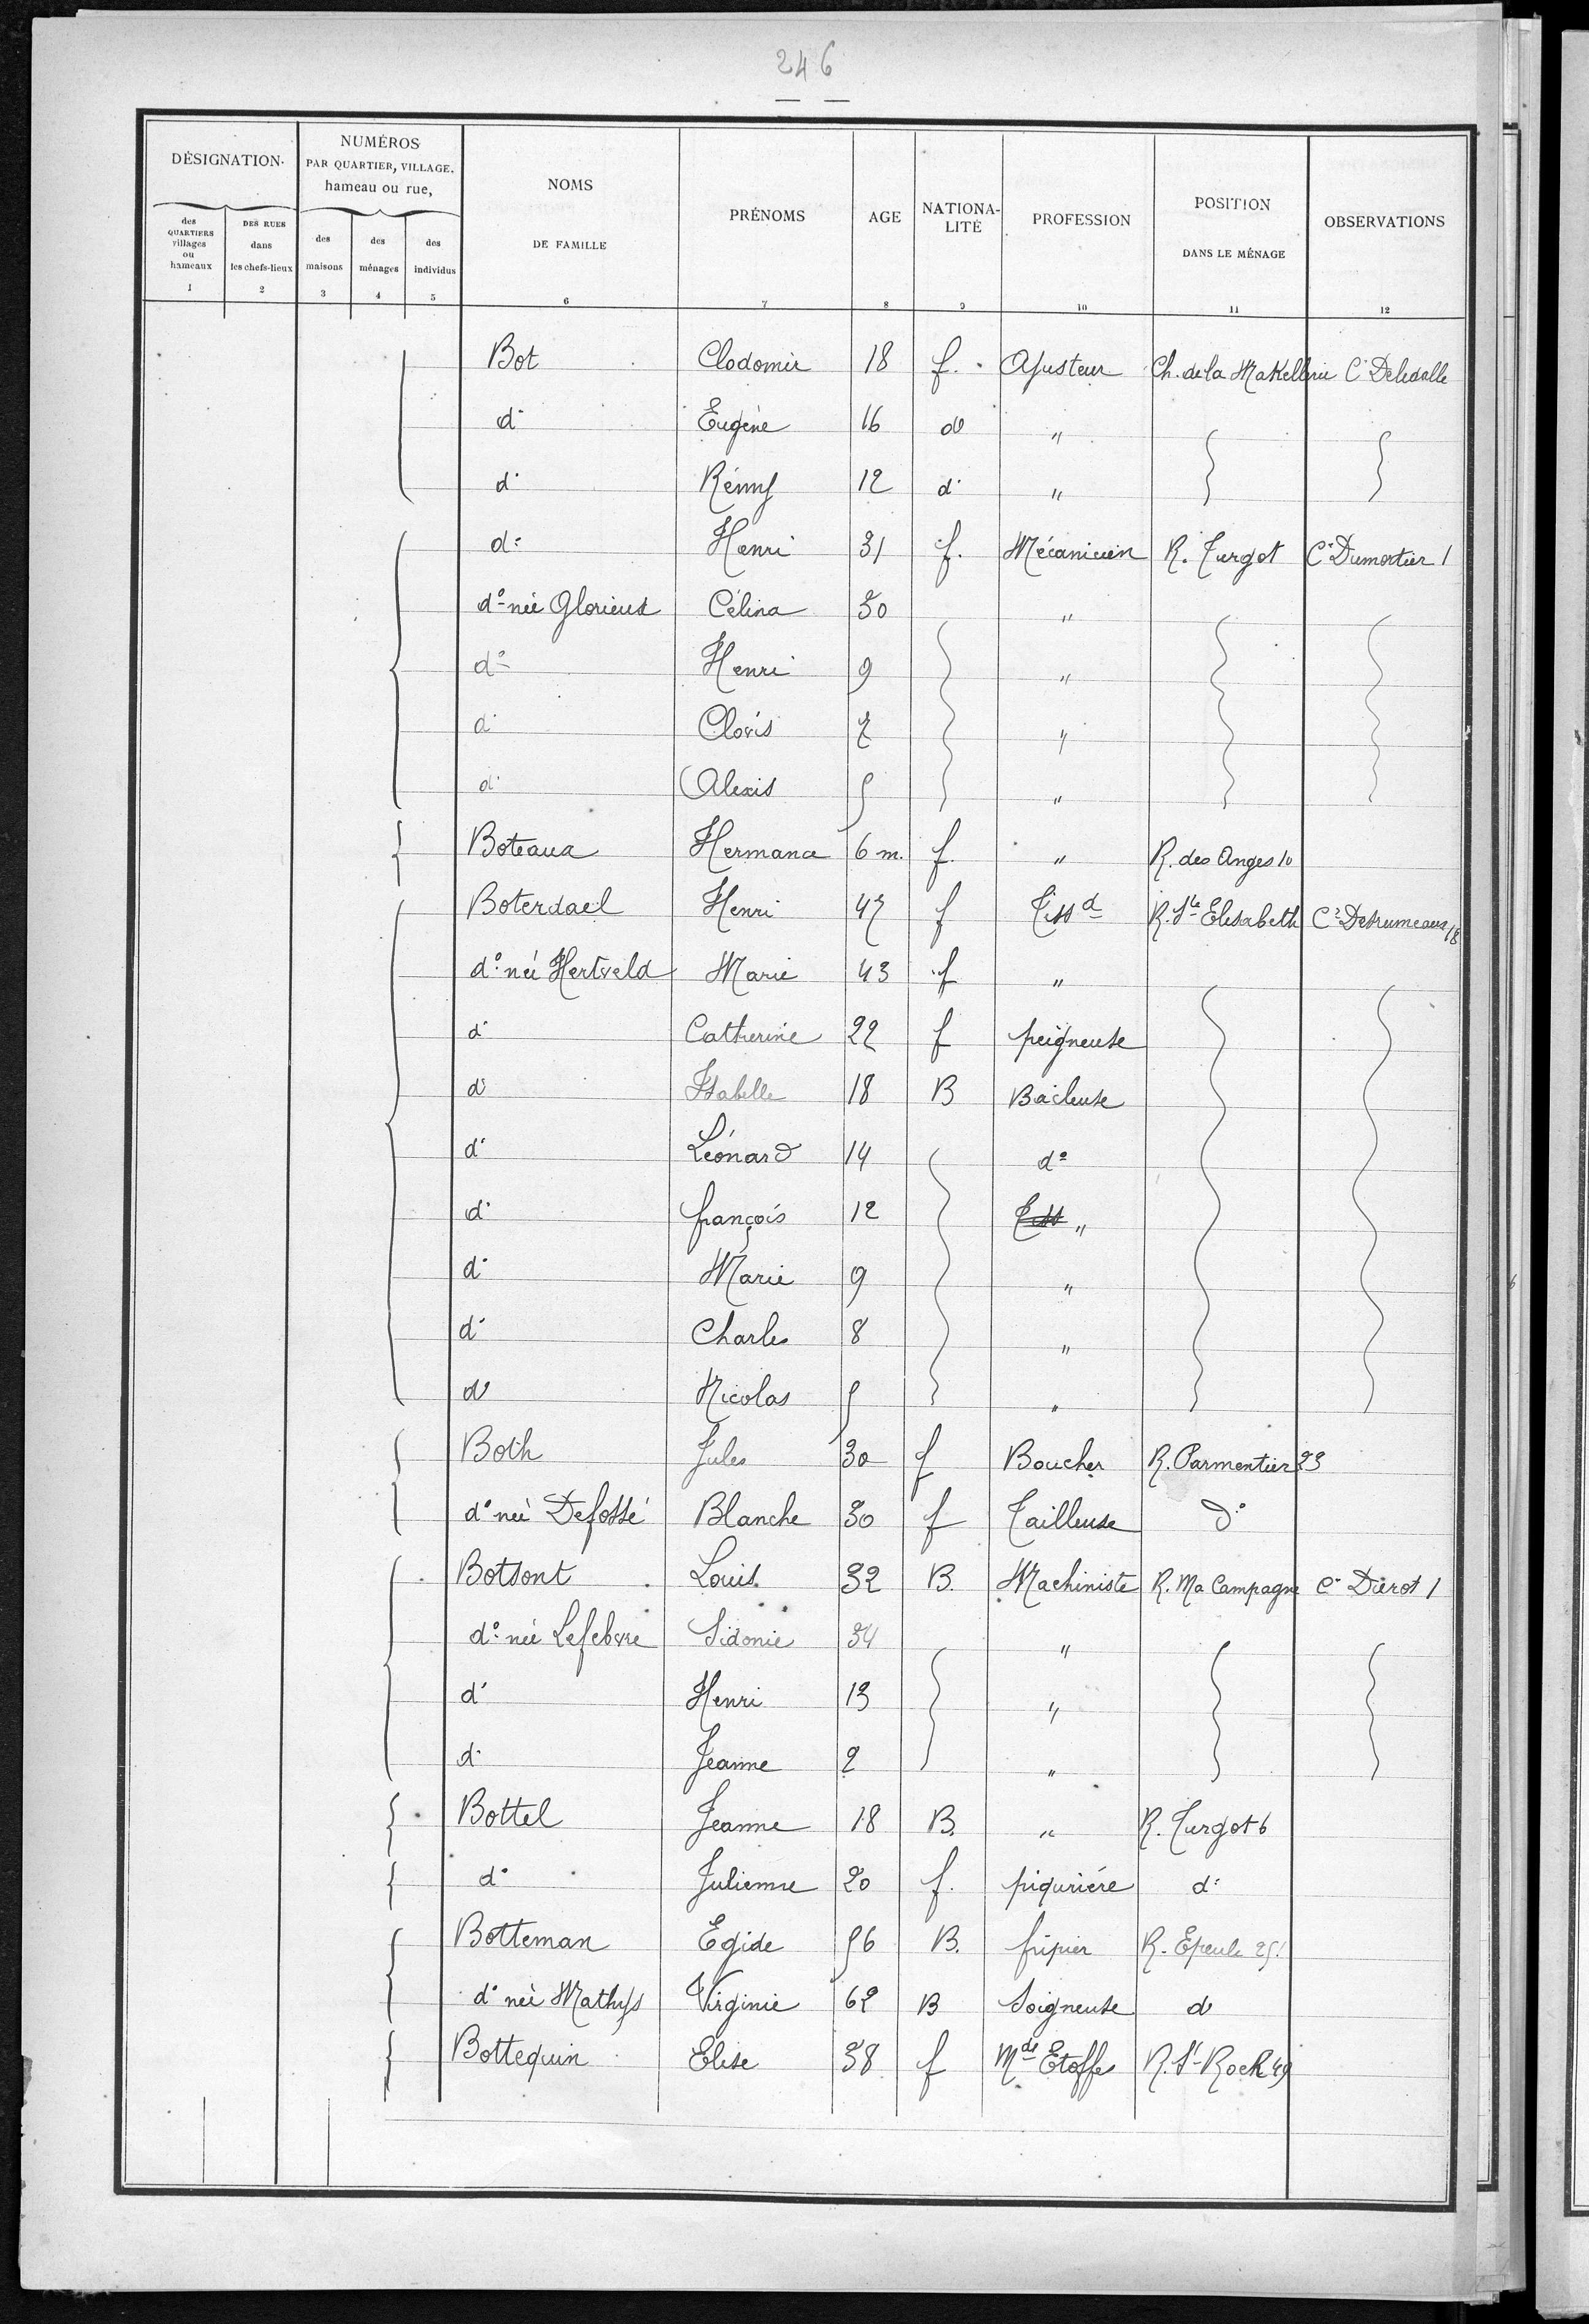 246
DÉSIGNATION
NUMÉROS
PAR QUARTIER, VILLAGE,
hameau ou rue,
des QUARTIERS villages ou hameaux
DES RUES dans les chefs-lieux
des maisons
des ménages
des individus
NOMS DE FAMILLE
PRÉNOMS
AGE
NATIONALITÉ
PROFESSION
POSITION DANS LE MÉNAGE
OBSERVATIONS
1 2 3 4 5 6 7 8 9 10 11 12
Bot Clodomir 18 f. Ajusteur Ch. de la Makellerie Cr Deledalle
do Eugène 16 do "
do Rémy 12 do "
do Henri 31 f. Mécanicien R. Turgot Cr Dumortier 1
do née Glorieux Célina 30 "
do Henri 9 "
do Clovis 7 "
do Alexis 5 "
Boteaux Hermance 6 m. f. " R. des Anges 10
Boterdael Henri 47 f Tissd R. Ste Elisabeth Cr Desrumeaux 18
do née Hertveld Marie 43 f "
do Catherine 22 f peigneuse
do Isabelle 18 B Bâcleuse
do Léonard 14 do
do françois 12 Tiss "
do Marie 9 "
do Charles 8 "
do Nicolas 5 "
Both Jules 30 f Boucher R. Parmentier 23
do née Defossé Blanche 30 f Tailleuse do
Botsont Louis 32 B. Machiniste R. Ma Campagne Cr Durot 1
do née Lefebvre Sidonie 34 "
do Henri 13 "
do Jeanne 2 "
Bottel Jeanne 18 B. " R. Turgot 6
do Julienne 20 f. piqurière do
Botteman Egide 56 B. fripier R. Epeule 251
do née Mathys Virginie 62 B Soigneuse do
Bottequin Elise 38 f Mde Etoffes R. St-Roch 49